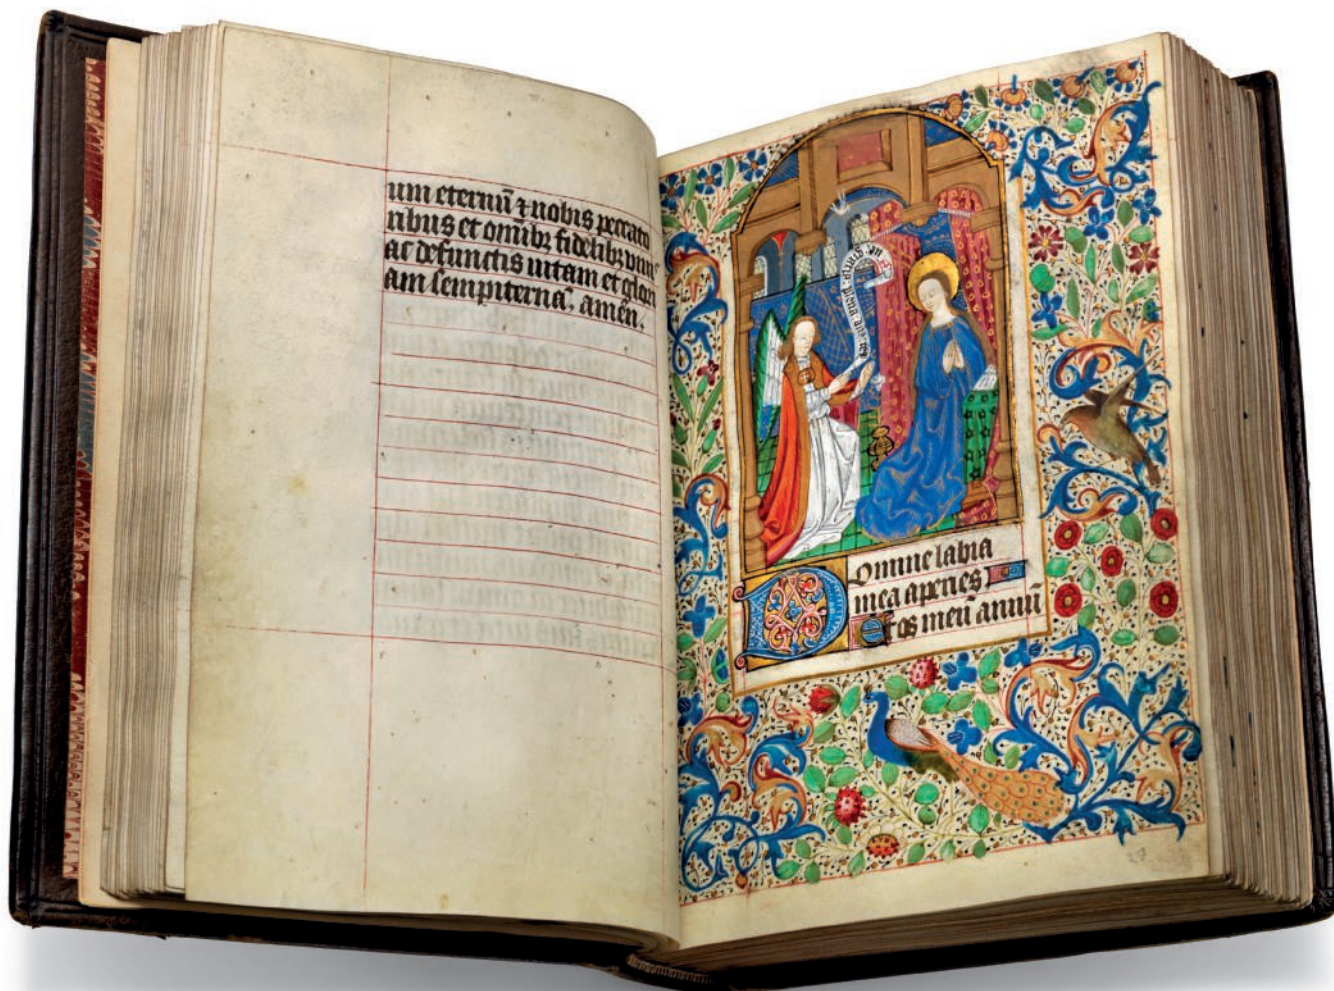 um eternū ⁊ nobis peccato
ribus et omībꝫ fidelibꝫ
ac defunctis uitam et glori
am sempiternā. amen.
Domine labia
mea aperies
Et os meū annū